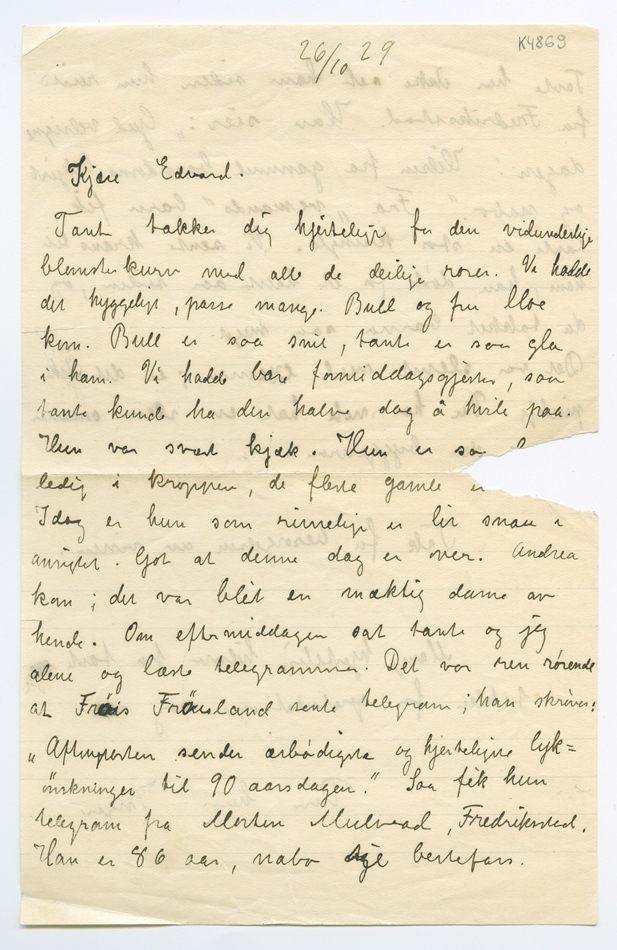 26/10 29
K4869
Kjære Edvard.
Tante takker dig hjerteligt for den vidunderlige
blomsterkurv med alle de deilige roser. Vi hadde
det hyggeligt, passe mange. Bull og fru Moe
kom. Bull er saa snil, tante er saa gla
i ham. Vi hadde bare formiddagsgjester, saa
tante kunde ha den halve dag å hvile paa.
Hun var svært kjæk. Hun er saa
ledig i kroppen, de fleste gamle er
Idag er hun som rimelig er litt smaa i
ansigtet. Got at denne dag er over. Andrea
kom; det var blét en mæktig dame av
hende. Om eftermiddagen sat tante og jeg
alene og læste telegrammer. Det var ren rørende
at Fröis Fröisland sente telegram; han skriver:
„Aftenposten sender ærbödigste og hjerteligste lyk=
önskninger til 90 aarsdagen." Saa fik hun
telegram fra Morten Mulvad, Fredrikstad.
Han er 86 aar, nabo til bestefars.